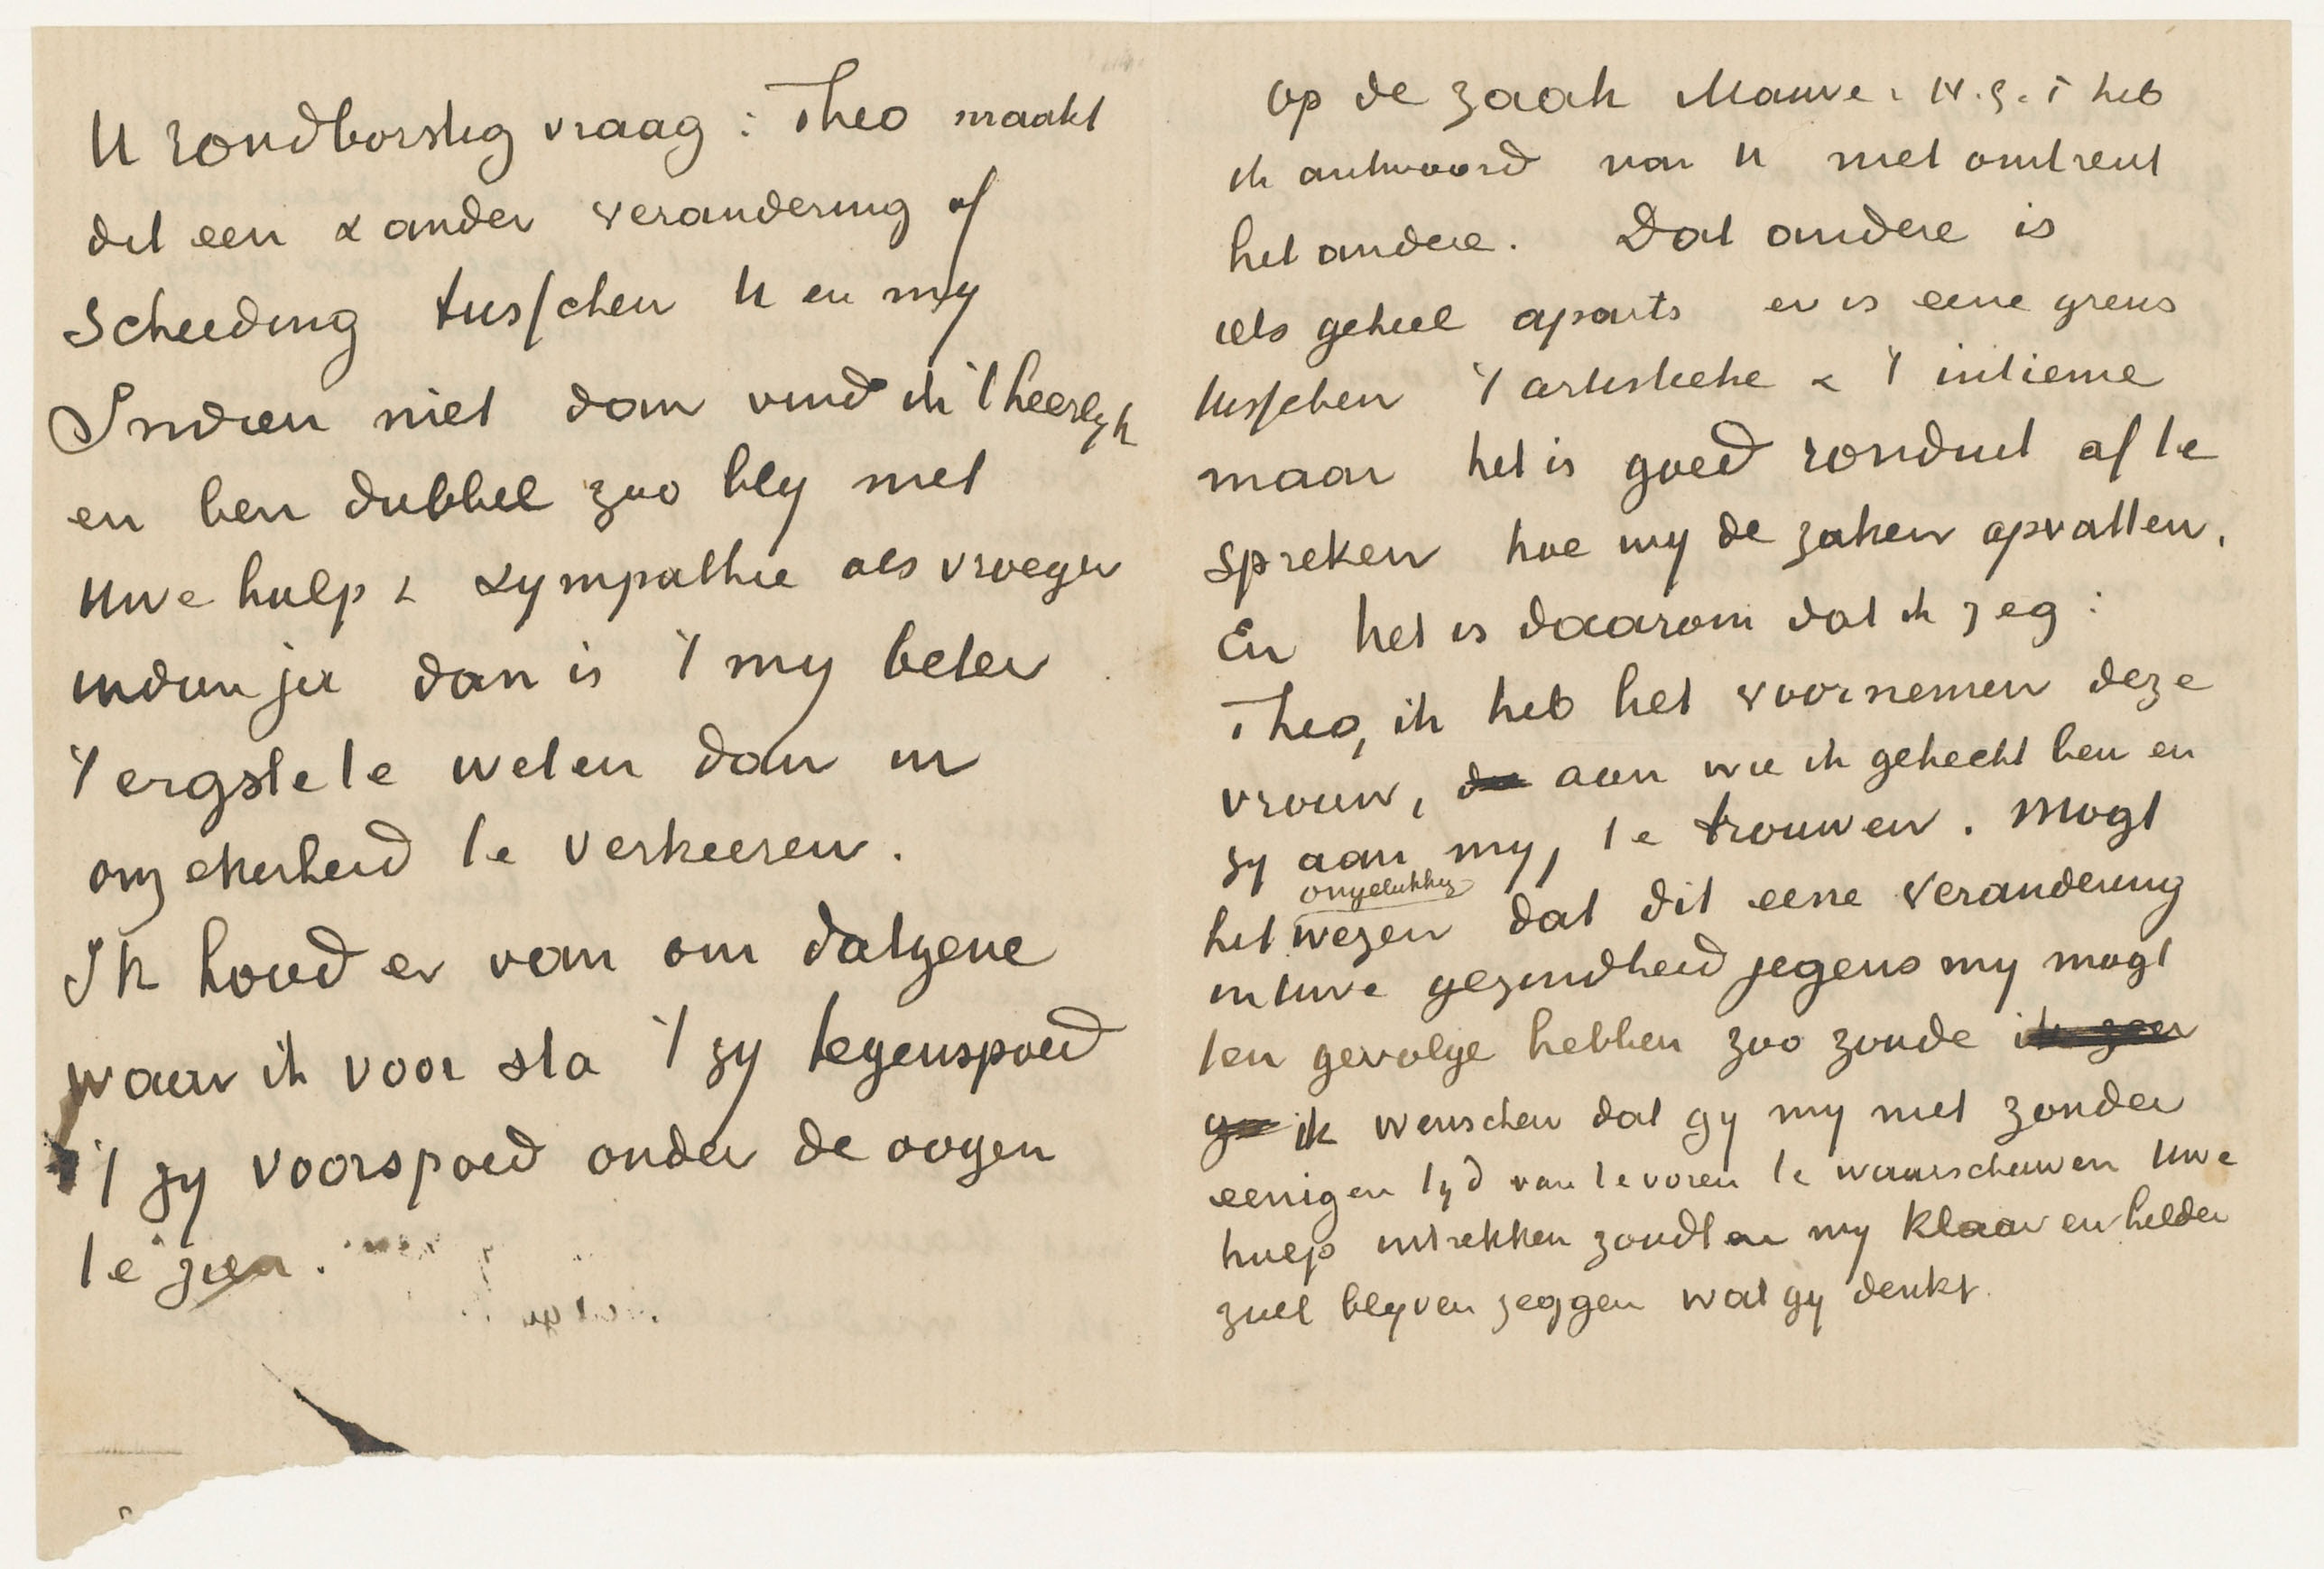 U rondborstig vraag : Theo maakt
dit een & ander verandering of
scheiding tusschen U en my
Indien niet dan vind ik 't heerlyk
en ben dubbel zoo bly met
Uwe hulp & sympathie als vroeger
indien ja dan is 't my beter
't ergste te weten dan in
onzekerheid te verkeeren.
Ik houd er van om datgene
waar ik voor sta 't zy tegenspoed
't zy voorspoed onder de oogen
te zien.
op de zaak Mauve.
ik antwoord van U niet omtrent
het andere. Dat andere is
iets geheel aparts er is eene grens
tusschen 't artistieke & 't intieme
maar het is goed ronduit af te
spreken hoe wy de zaken opvatten.
En het is daarom dat ik zeg :
Theo, ik heb het voornemen deze
vrouw, aan wie ik gehecht ben en
zy aan my, te trouwen. Mogt
ongelukkig
het wezen dat dit eene verandering
in Uwe gezindheid jegens my mogt
ten gevolge hebben zoo zoude ik zou
ik wenschen dat gy my niet zonder
eenigen tyd van te voren te waarschuwen Uwe
hulp intrekken zoudt en my klaar en helder
zult blyven zeggen wat gy denkt.